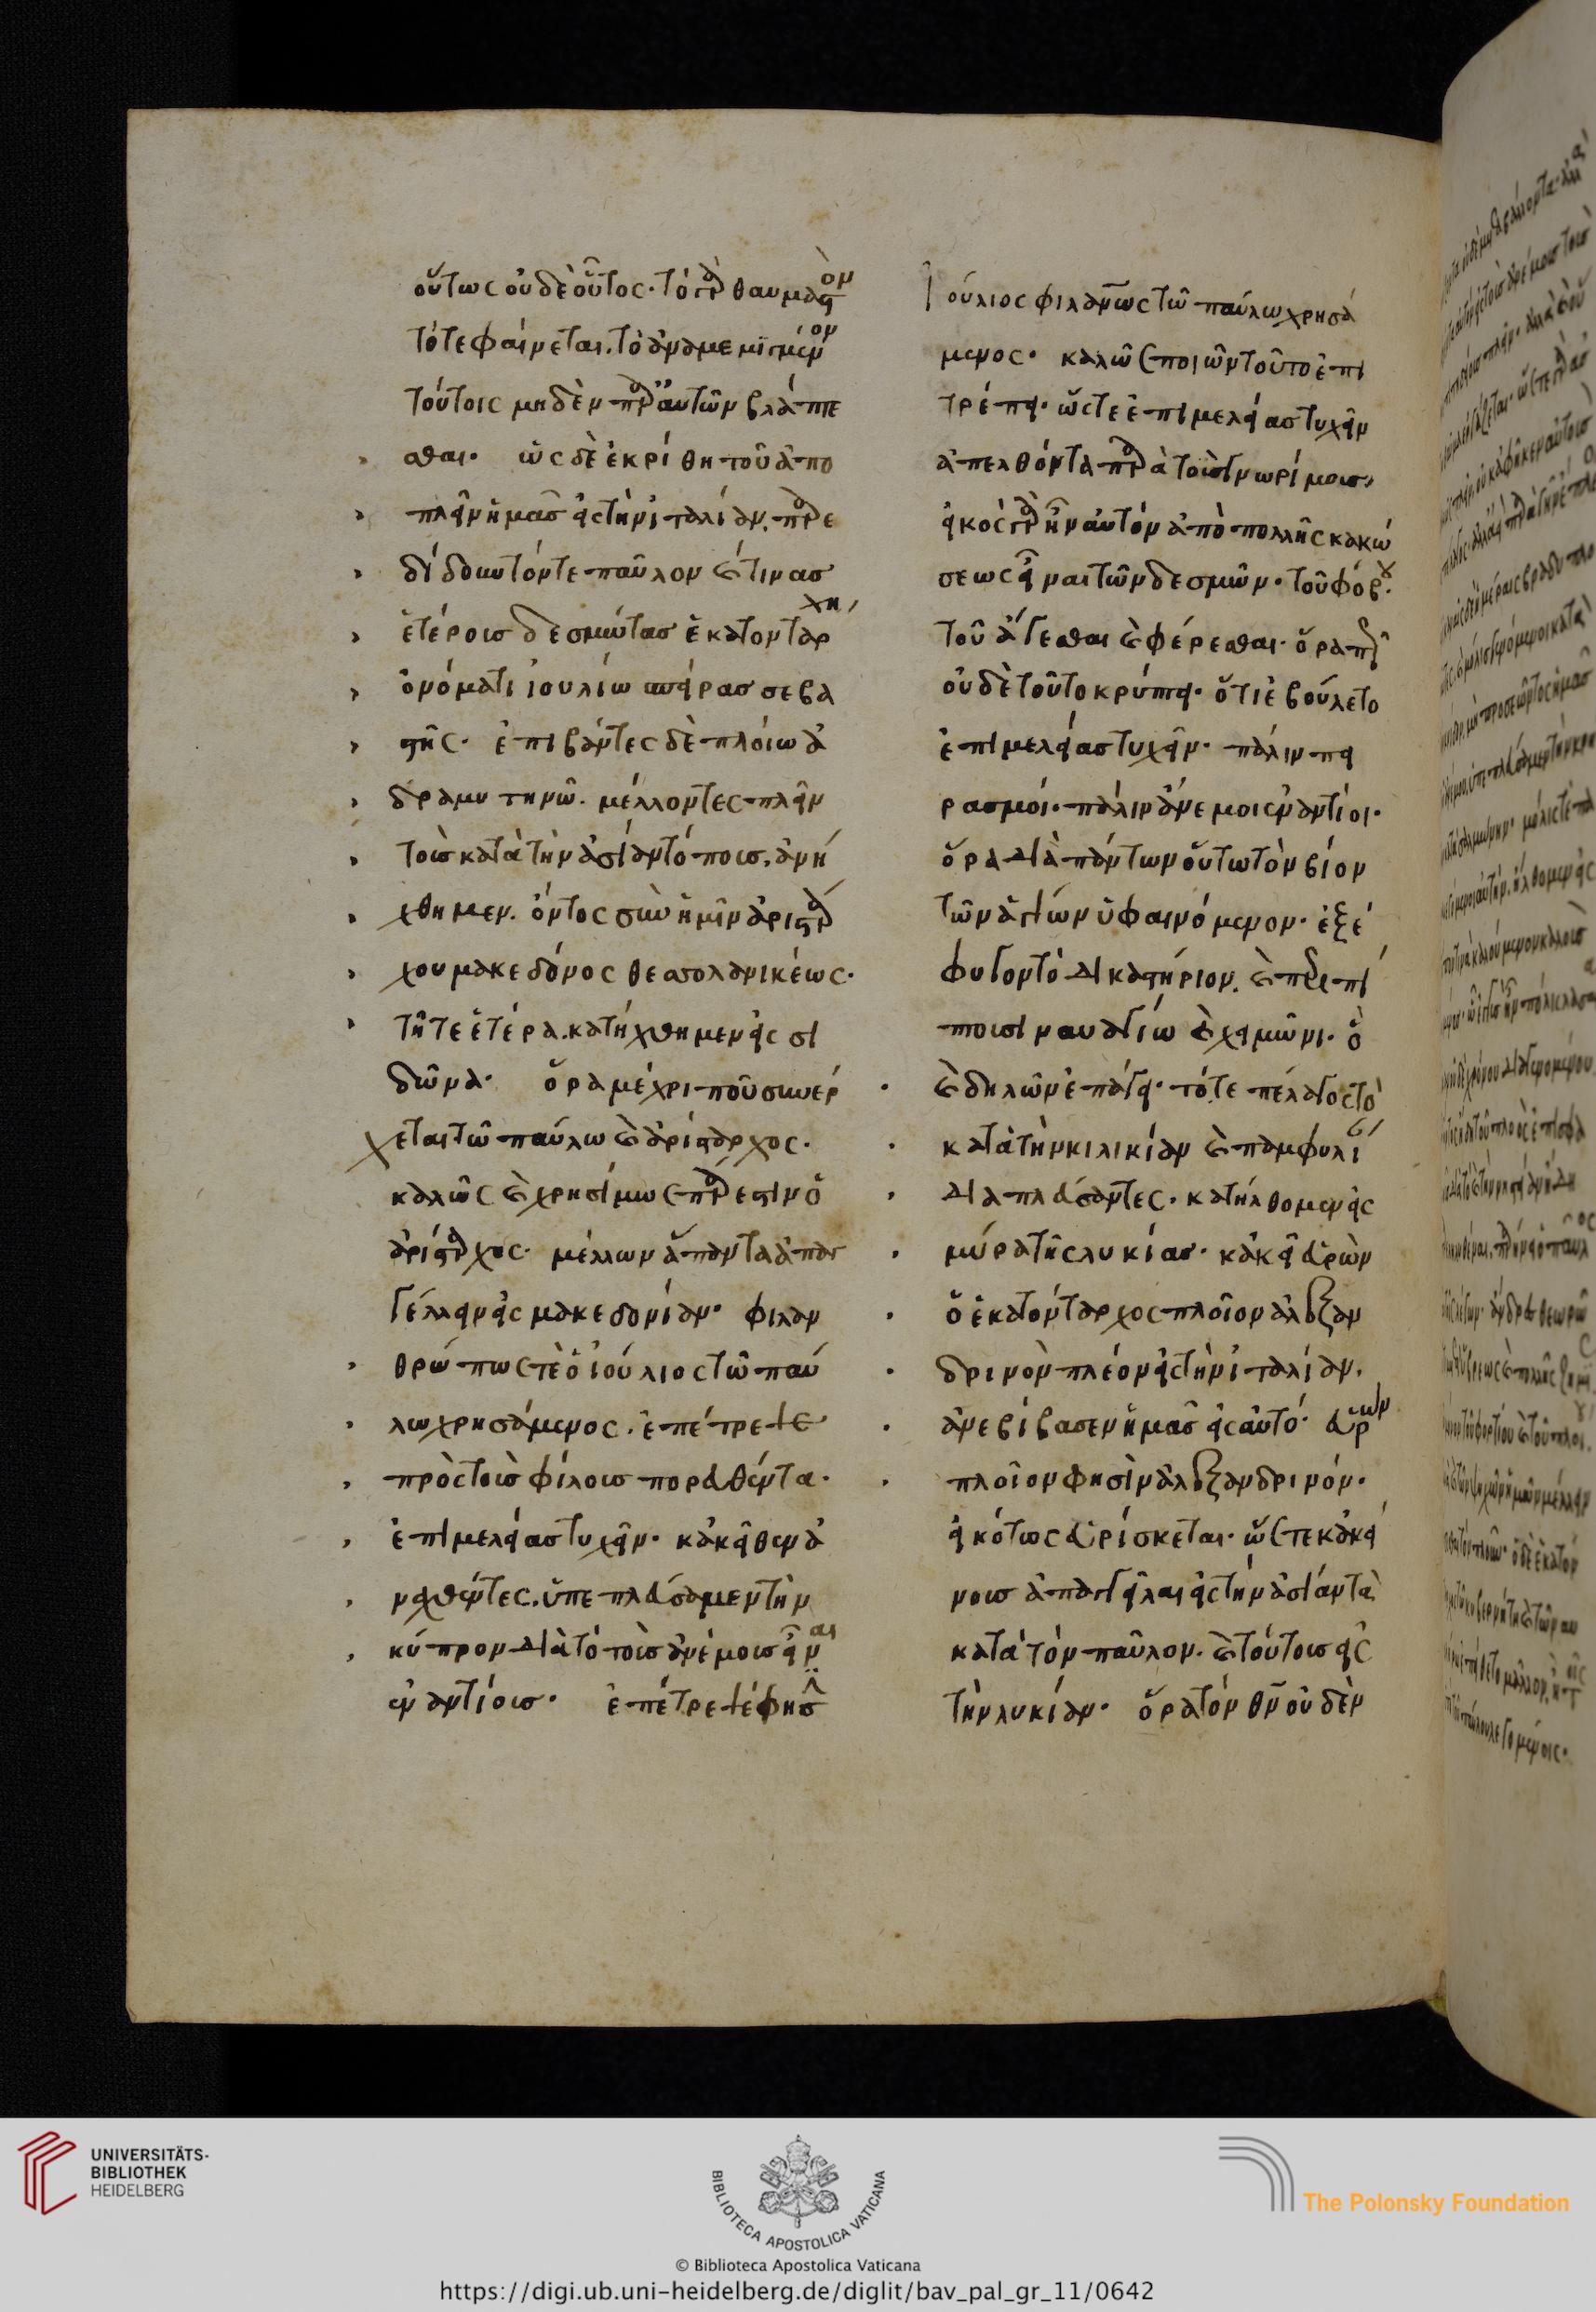 οὕτως οὐδὲ οὗτος· τὸ γὰρ θαυμαστὸν
τότε φαίνεται. τὸ ἀναμεμιγμένον
τούτοις μηδὲν παρ' αὐτῶν βλάπτε
σθαι· ὡς δὲ ἐκρίθη τοῦ ἀπο
πλεῖν ἡμᾶς εἰς τὴν ἰταλίαν. παρε
δίδουν τόν τε παῦλον καί τινας
ἑτέροις δεσμώτας ἑκατοντάρχη,
ὀνόματι ἰουλίω σπείρας σεβα
στῆς· ἐπιβάντες δὲ πλοίω ἀ
δραμυτηνῶ. μέλλοντες πλεῖν
τοῖς κατὰ τὴν ἀσίαν τόποις, ἀνή
χθημεν. ὄντος σὺν ἡμῖν ἀριστάρ
χου μακεδόνος θεσσαλονικέως·
τῆ τε ἑτέρα. κατήχθημεν εἰς σι
δῶνα· ὅρα μέχρι ποῦ συνέρ
χεται τῶ παύλω καὶ ἀρίσταρχος·
καλῶς καὶ χρησίμως πάρεστιν ὁ
ἀρίσταρχος· μέλλων ἅπαντα ἀπαγ
γέλλειν εἰς μακεδονίαν· φιλαν
θρώπως τὲ ὁ ἰούλιος τῶ παύ
λω χρησάμενος. ἐπέτρεψε
πρὸς τοῖς φίλοις πορευθέντα·
ἐπιμελείας τυχεῖν· κἀκεῖθεν ἀ
ναχθέντες. ὑπεπλεύσαμεν τὴν
κύπρον διὰ τὸ τοῖς ἀνέμοις εἶναι
ἐναντίοις· ἐπέτρεψέ φησ
Ἰούλιος φιλανων τῶ παύλω χρησά
μενος· καλῶς ποιῶν τοῦτο ἐπι
τρέπει· ὥστε ἐπιμελείας τυχεῖν
ἀπελθόντα παρὰ τοῖς γνωρίμοις,
εἰκὸς γὰρ ἦν αὐτὸν ἀπὸ πολλῆς κακώ
σεως εἶναι τῶν δεσμῶν· τοῦ φόβου·
τοῦ ἄγεσθαι καὶ φέρεσθαι· ὅρα πῶς
οὐδὲ τοῦτο κρύπτει· ὅτι ἐβούλετο
ἐπιμελείας τυχεῖν· πάλιν πει
ρασμοί· πάλιν ἄνεμοι ἐναντίοι·
ὅρα διὰ πάντων οὕτω τὸν βίον
τῶν ἁγίων ὑφαινόμενον· ἐξέ
φυγον τὸ δικαστήριον. καὶ περιπί
πτουσι ναυαγίω καὶ χειμῶνι· ὃ
καὶ δηλῶν ἐπάγει· τό, τε πέλαγος τὸ
κατὰ τὴν κιλικίαν καὶ παμφυλί
διαπλεύσαντες· κατήλθομεν εἰς
μύρα τῆς λυκίας· κἀκεῖ εὑρὼν
ὁ ἑκατόνταρχος πλοῖον ἀλεξαν
δρινὸν πλέον εἰς τὴν ἰταλίαν.
ἀνεβίβασεν ἡμᾶς εἰς αὐτό· εὑρὼν
πλοῖον φησὶν ἀλεξανδρινόν·
εἰκότως εὑρίσκεται· ὥστε κἀκεί
νοις ἀπαγγεῖλαι εἰς τὴν ἀσίαν τὰ
κατὰ τὸν παῦλον. καὶ τούτοις εἰς
τὴν λυκίαν· ὅρα τὸν θν οὐδὲν
UNIVERSITÄTS-
BIBLIOTHEK
HEIDELBERG
BIBLIOTECA APOSTOLICA VATICANA
© Biblioteca Apostolica Vaticana
The Polonsky Foundation
https://digi.ub.uni-heidelberg.de/diglit/bav_pal_gr_11/0642